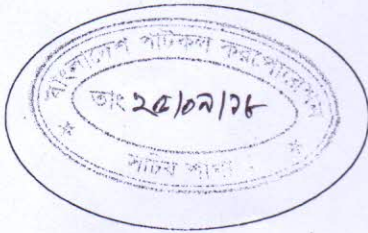 বাংলাদেশ পাটকল করপোরেশন
তাং ২৫/০৯/১৮
সচিব শাখা